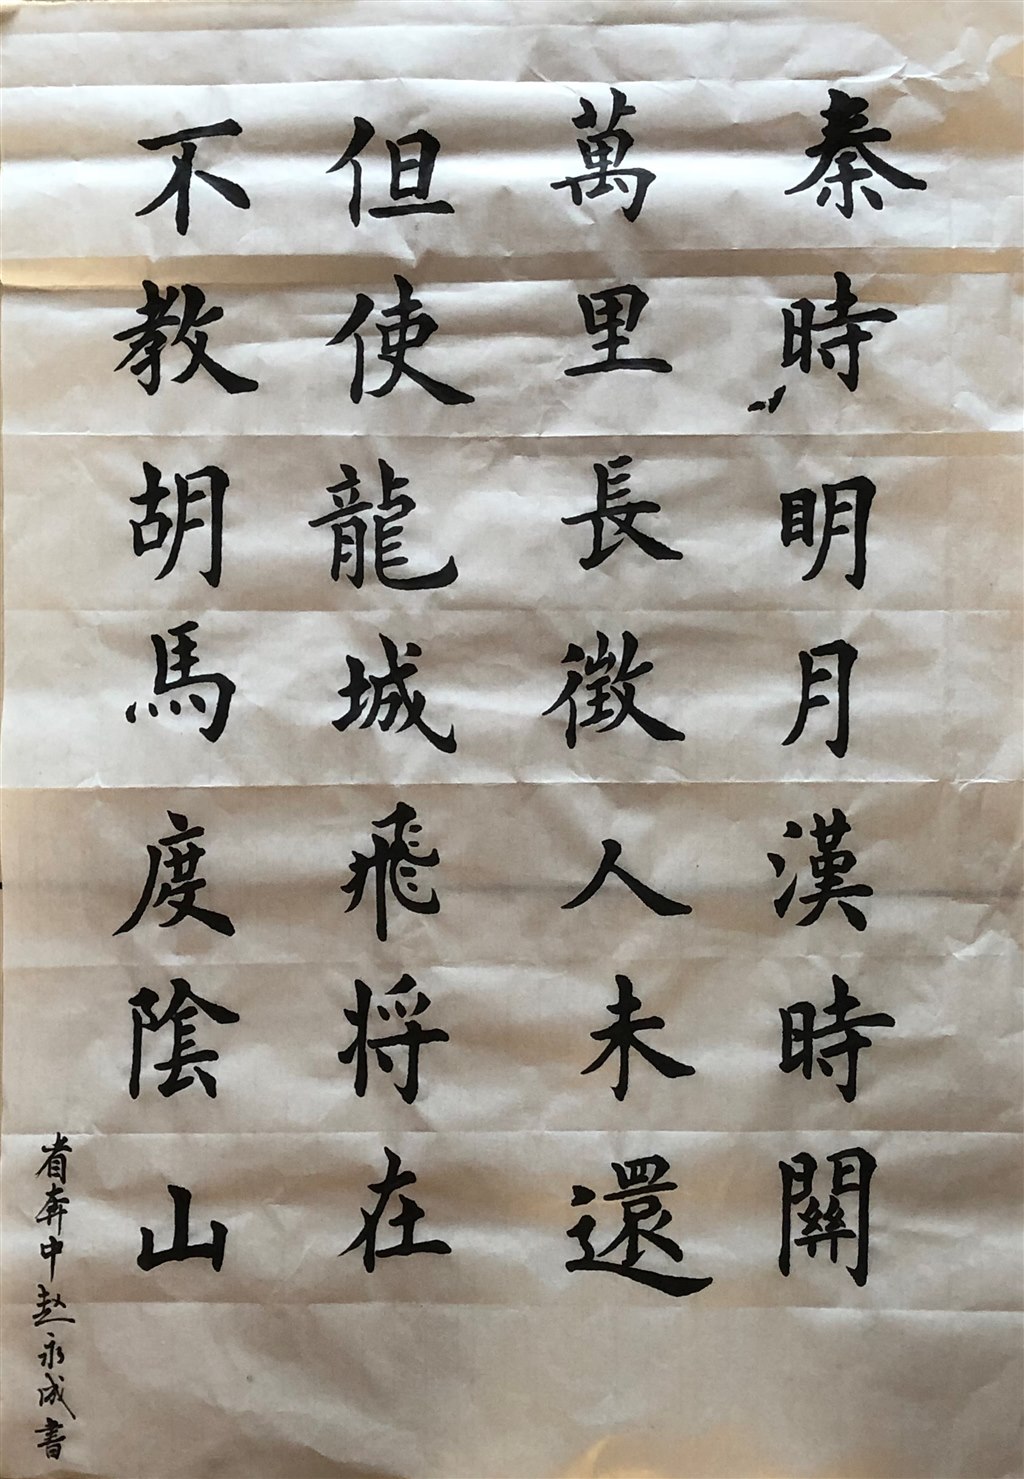 秦時明月漢時關
萬里長徵人未還
但使龍城飛将在
不教胡馬度陰山
省奔中赵永成書